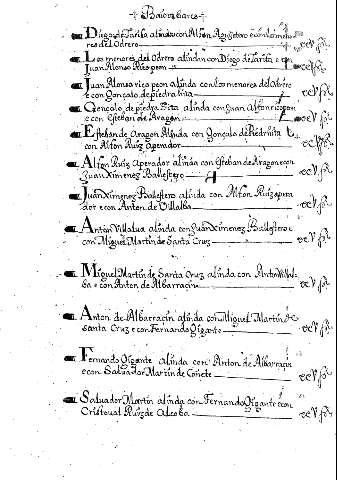 Diego de Tarifa alinda con Alfon Agujetero e con los meno
res del Odrero
Los menores del Odrero alindan con Diego de Tarifa e con
Juan Alonso Rico peon
Juan Alonso rico peon alinda con los menores del Odrero
e con Gonçalo de piedra hita
Gonçalo de piedra hita alinda con Juan Alfon rico peon
e con Esteban de Aragon
Esteban de Aragon Alinda con Gonçalo de Piedrahita
con Alfon Ruiz Aperador
Alfon Ruiz Aperador alinda con Esteban de Aragon e con
Juan Ximenez Ballestero
Juan Ximenez Ballestero alinda con Alfon Ruiz apera
dor e con Anton de Villalba
Anton Villalva alinda con Juan Ximenez Ballestero e
con Miguel Martin de Santa Cruz
Miguel Martin de Santa Cruz alinda con Anton Villal
ba e con Anton de Albarracin
Anton de Albarracin alinda con Miguel Martin de
santa Cruz e con Fernando Gigante
Fernando Gigante alinda con Anton de Albarracin
e con Salvador Martin de Cañete
Salvador Martin alinda con Fernando Gigante e con
Cristoual Ruiz de Alcoba